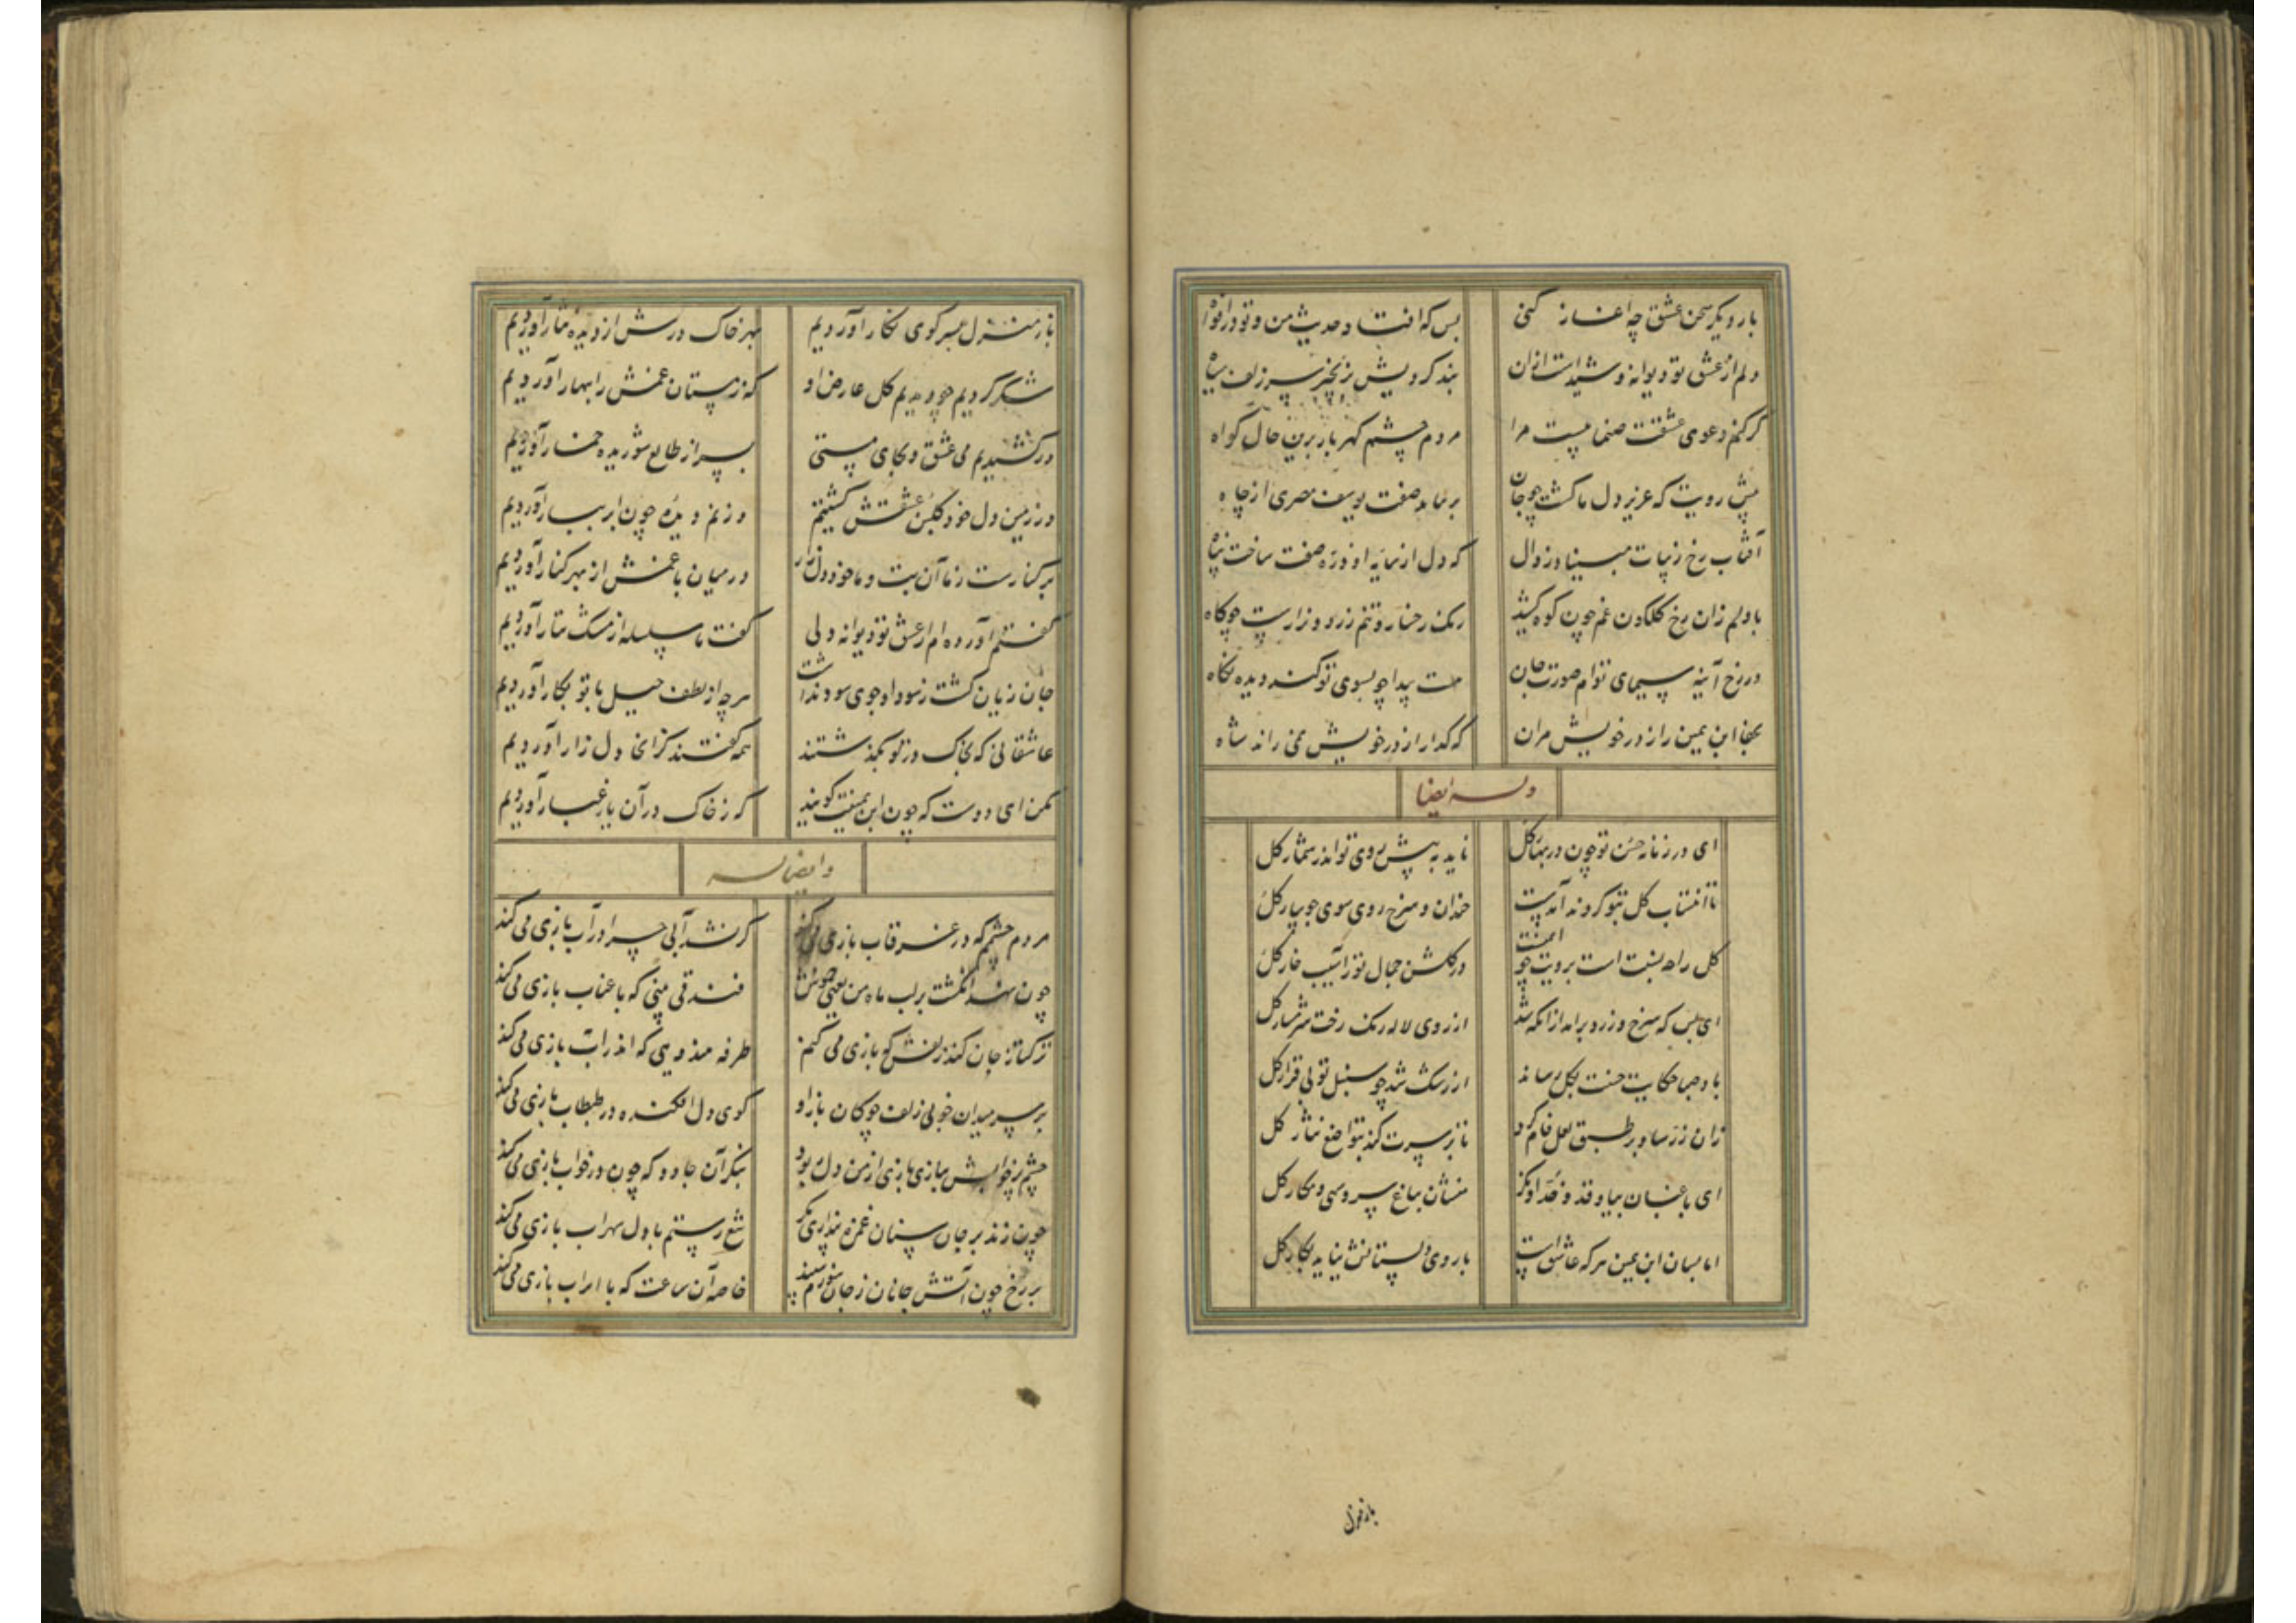 بار دیکر سخن عشق چه اغاز کنی
بس که افتاد حدیث من و تو در افواه
دلم از عشق تو دیوانه و شیداست ازان
بند کردیش بزنجیر سر زلف سیاه
کر کنم دعوی عشقت صنما نیست مرا
مردم چشم کهربار برین حال کواه
پیش رویت که عزیز دل ما کشت چو جان
برنماید صفت یوسف مصری از چاه
آفتاب رخ زیبات مبیناد زوال
که دل از سایه او ذره صفت ساخت پناه
با دلم زان رخ کلکون غم چون کوه کشید
رنک رخساره و تنم زرد و نزارست چو کاه
در رخ آینه سیمای توام صورت جان
هست پیدا چو بسوی تو کند دیده نکاه
بجفا ابن یمین را ز در خویش مران
که کدا را ز در خویش نمی راند شاه
وله ایضا
ای در زمانه حسن تو چون در بهار کل
ناید به پیش روی تو اندر شمار کل
تا انتساب کل بتو کردند آمدست
خندان و سرخ روی سوی جویبار کل
کل راه بسته است برویت چو ایمنست
در کلشن جمال تو ز آسیب خار کل
ای بس که سرخ و زرد برآمد از آنکه شد
از روی لاله رنک رخت شرمسار کل
باد صبا حکایت حسنت بکل رساند
از رشک شد چو سنبل تو بی قرار کل
زان زر ساو بر طبق لعل فام کرد
تا بر سرت کند بتواضع نثار کل
ای باغبان بیا و قد و خد او نکر
منشان بباغ سرو سهی و مکار کل
اما بسان ابن یمین هر که عاشق است
با روی دلستانش نیاید بکار کل
باز منزل بسر کوی نکار آوردیم
بهر خاک درش از دیده نثار آوردیم
شکر کردیم چو دیدیم کل عارض او
که زمستان غمش را ببهار آوردیم
درکشیدیم می عشق و بجای مستی
سر از طالع شوریده خمار آوردیم
در زمین دل خود کلبن عشقش کشتیم
وز نم دیده چون ابر بهار آوردیم
بر کنارست ز ما آن بت و ما خود دل زار
در میان با غمش از بهر کنار آوردیم
کفتم آورده ام از عشق تو دیوانه دلی
کفت ما سلسله از مشک تتار آوردیم
جان زیان کشت ز سودا و جوی سود نداشت
هر چه از لطف حیل با تو بکار آوردیم
عاشقانی که بخاک در تو بکذشتند
همه کفتند کز انجا دل زار آوردیم
مکن ای دوست که چون ابن یمینت کویند
که ز خاک در آن یار غبار آوردیم
وایضاله
مردم چشمم که در غرقاب بازی می کند
کر نشد آبی چرا در آب بازی می کند
چون نهد انکشت بر لب ماه من یعنی خموش
فندقی بینی که با عناب بازی می کند
ترکتاز جان کند زلفش کج بازی می کنم
طرفه هندویی که اندر آب بازی می کند
بر سر میدان خوبی زلف چوکان باز او
کوی دل افکنده در طبطاب بازی می کند
چشم پر خوابش ببازی بازی از من دل ربود
بنکر آن جادو که چون در خواب بازی می کند
چون زند بر جان سنان غمزه پنداری مکر
تیغ رستم با دل سهراب بازی می کند
بر رخ چون آتش جانان ز جان
خاصه آن ساعت که با بازی می کند
باز منزل